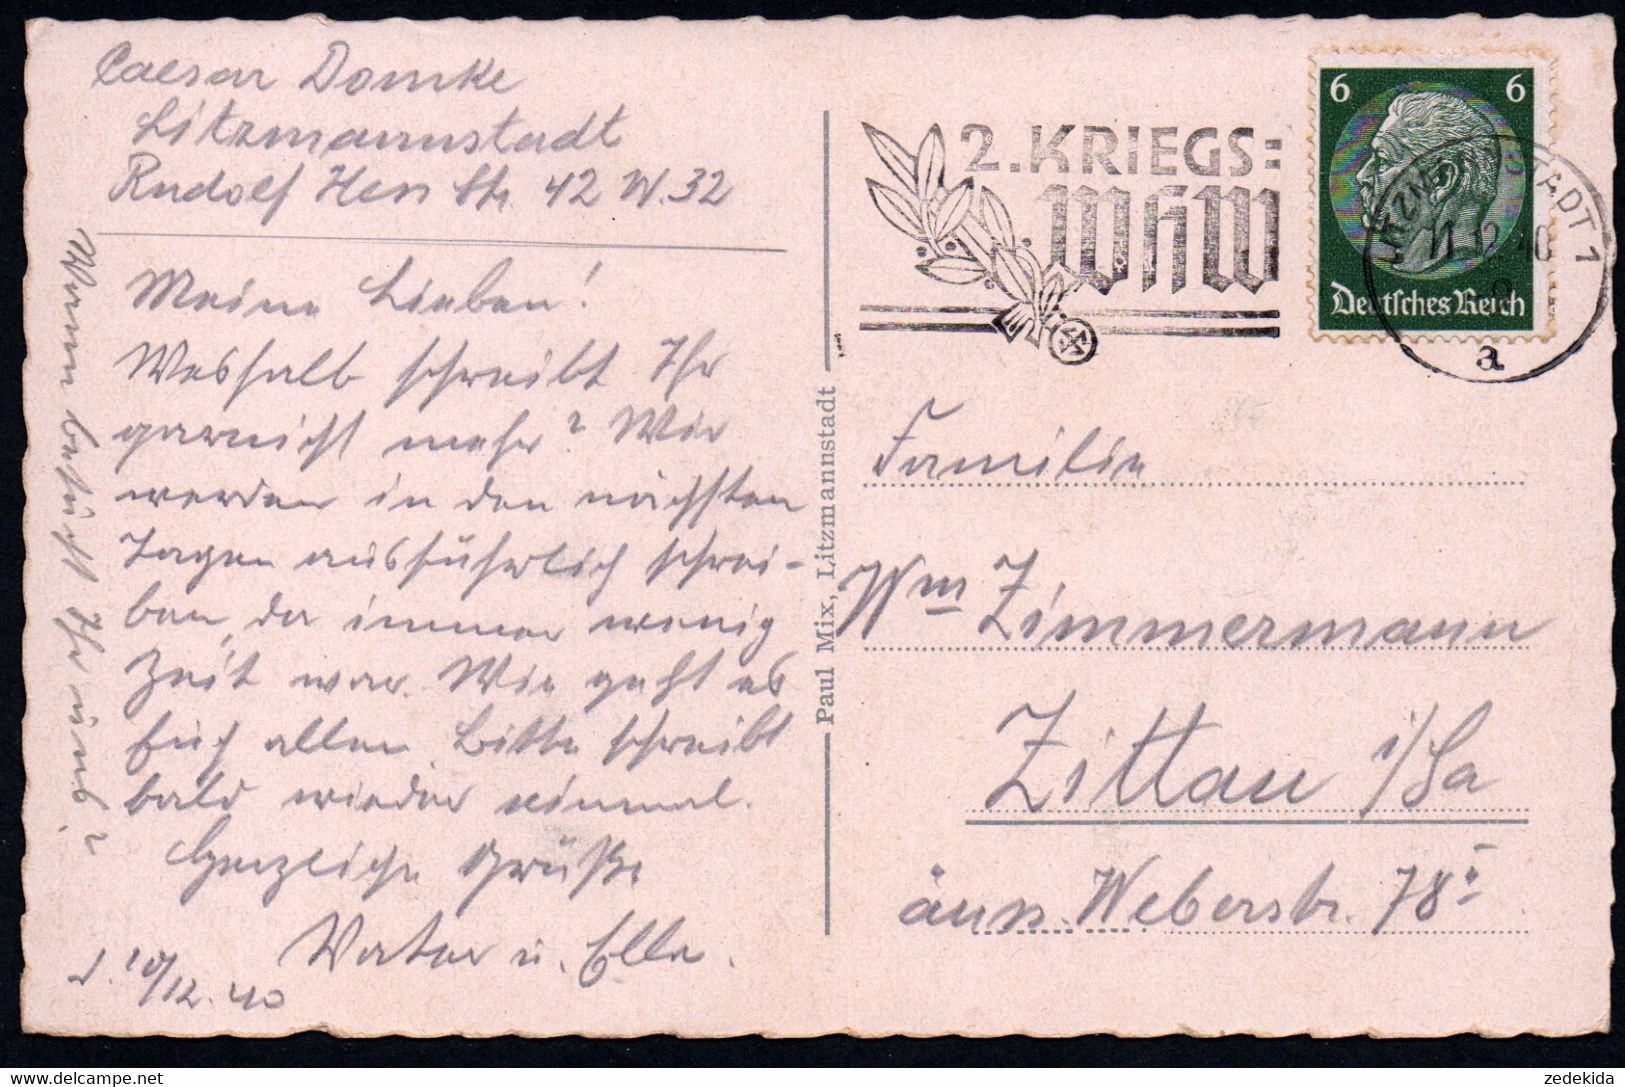 Caesar Domke
Litzmannstadt
Rudolf Hess Str. 42 W. 32
Meine Lieben!
Weshalb schreibt Ihr
garnicht mehr? Wir
werden in den nächsten
Tagen ausführlich schrei-
ben, da immer wenig
Zeit war. Wie geht es
Euch allen. Bitte schreibt
bald wieder einmal.
Herzliche Grüße
Vater u. Elle.
d. 10/12. 40
Wann besucht Ihr uns?
Paul Mix, Litzmannstadt
2. KRIEGS=
WHW
6 6
Deutsches Reich
LITZMANNSTADT 1
11.12.40
a
Familie
Wm Zimmermann
Zittau i/Sa
äuss. Weberstr. 78 I
zedekida